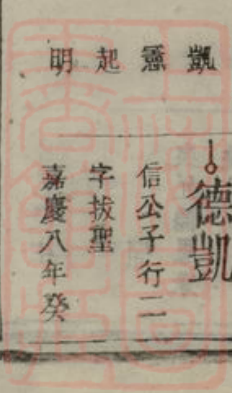 凱
起
明
德凱
信公子行二
字拔聖
嘉慶八年癸